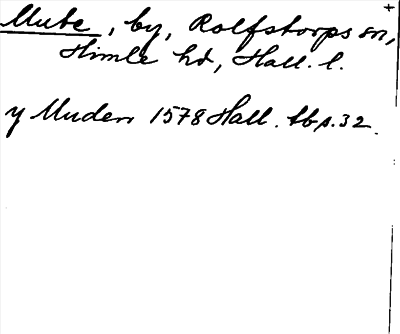 Mute, by, Rolfstorps sn,
Himle hd, Hall. l.
y Muderr 1578 Hall. tb s. 32